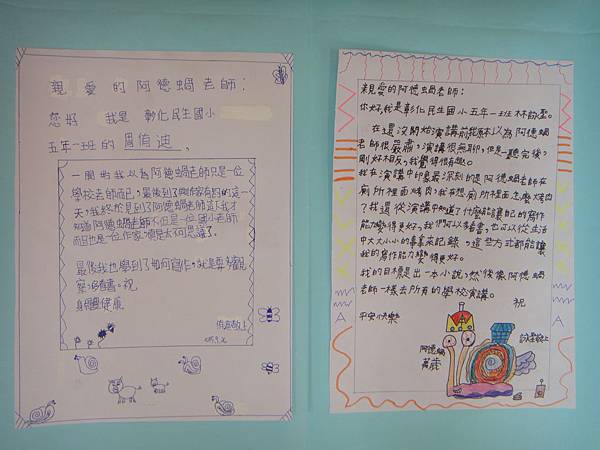 親愛的阿德蝸老師：
您好 我是 彰化民生國小
五年一班的 周佾迪，
一開始我以為阿德蝸老師只是一位
學校老師而已，最後到了與作家有約的這一
天，我終於見到了阿德蝸老師這人，我才
知道阿德蝸老師不但是一位國小老師
而且也是一位作家，真是太不可思議了。
最後我也學到了如何寫作，就是要多觀
察，多看書。祝
身體健康
敬上
親愛的阿德蝸老師：
你好，我是彰化民生國小五年一班林
在還沒開始演講前我原本以為阿德蝸
老師很嚴肅，演講很無聊，但是一聽完後，
剛好相反，我覺得很有趣。
我在演講中印象最深刻的是阿德蝸老師在
廁所裡面烤肉，我在想廁所裡面怎麼烤肉
？我還從演講中知道了什麼能讓自己的寫作
能力變得更好。我們可以多看書，也可以從生活
中大大小小的事拿來記錄，這些方式都能讓
我的寫作能力變得更好。
我的目標是出一本小說，然後像阿德蝸
老師一樣去所有的學校演講。
祝
平安快樂
敬上
阿德蝸
A
A
A